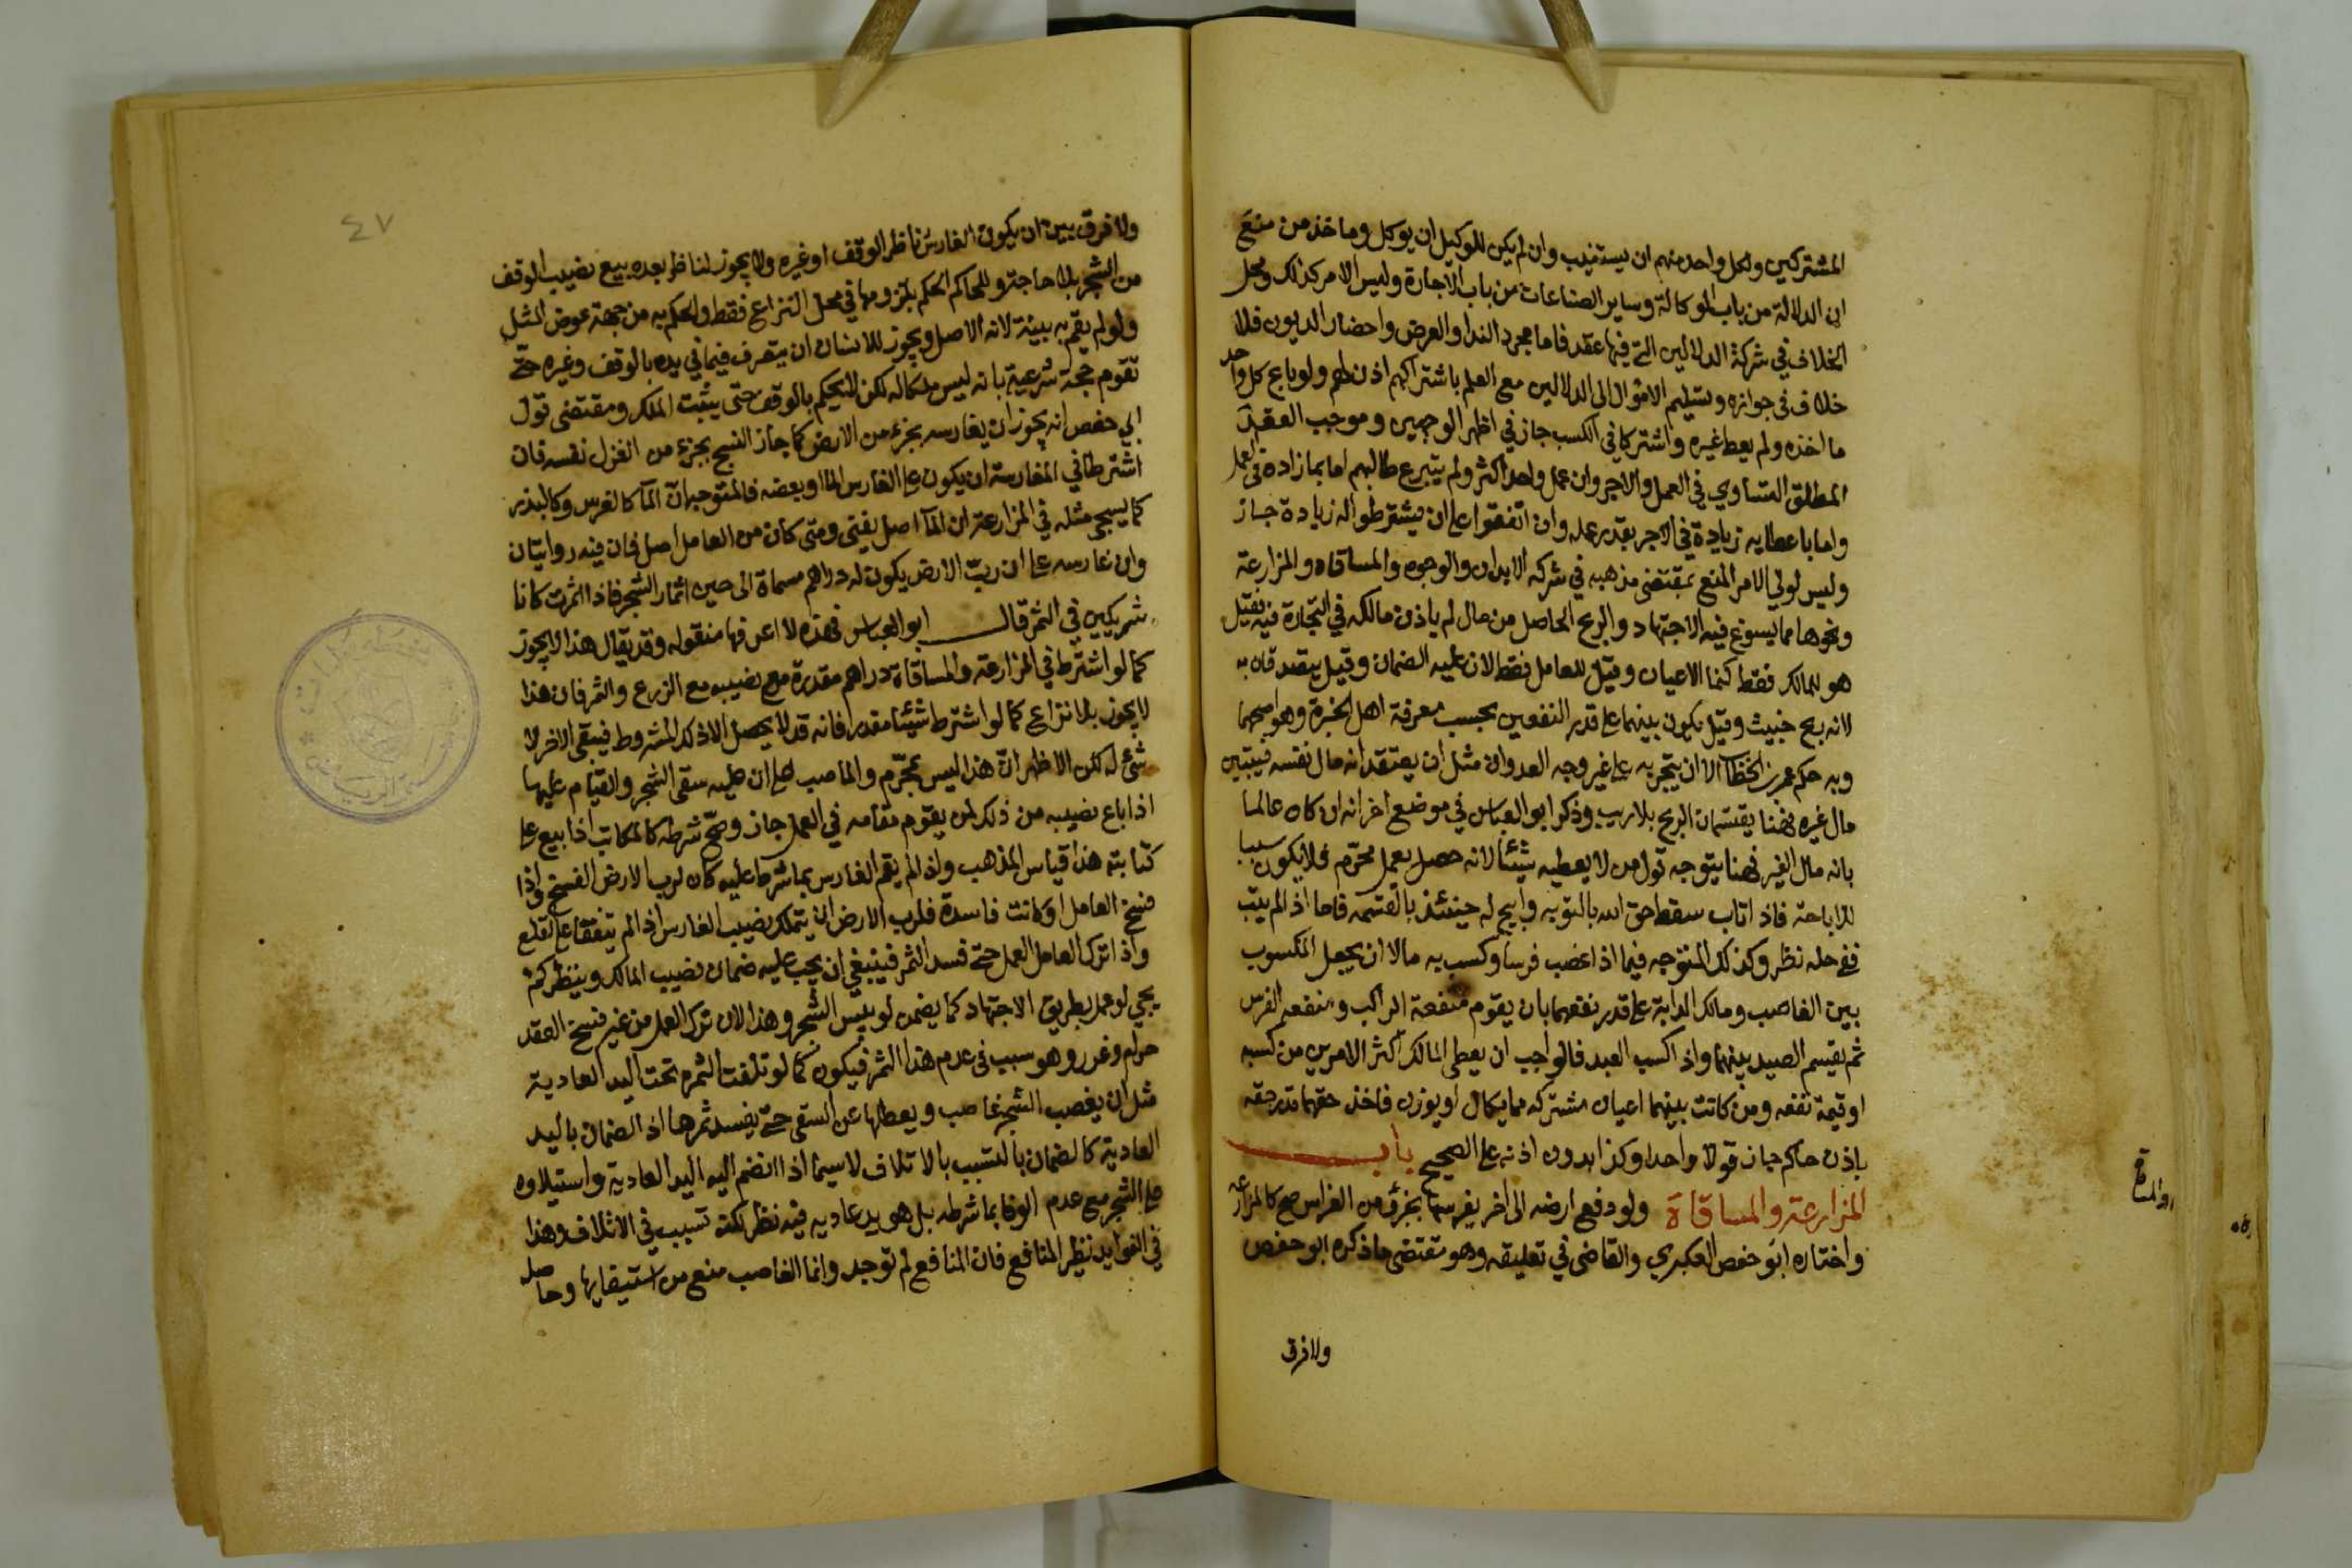 المشتركين ولكل واحد منهم ان يستنيب وان لم يكن للوكيل ان يوكل وماخذ من منع
ان الدلالة من باب الوكالة وساير الصناعات من باب الاجارة وليس الامر كذلك ومحل
الخلاف في شركة الدلالين التي فيها عقد فاما مجرد الندا والعرض واحضار الديون فلا
خلاف في جوازه وتسليم الاموال الى الدلالين مع العلم باشتراكهم اذن لهم ولو باع كل واحد
ما اخذه ولم يعط غيره واشتركا في الكسب جاز في اظهر الوجهين وموجب العقد
المطلق التساوي في العمل والاجر وان عمل واحد اكثر ولم يتبرع طالبهم اما بما زاده في العمل
واما باعطايه زيادة في الاجر بقدر عمله وان اتفقوا على ان يشترطوا له زيادة جاز
وليس لولي الامر المنع بمقتضى مذهبه في شركه الابدان والوجوه والمساقاه والمزارعة
ونحوها مما يسوغ فيه الاجتهاد والربح الحاصل من مال لم ياذن مالكه في التجارة فيه فقيل
هو للمالك فقط كنما الاعيان وقيل للعامل فقط لان عليه الضمان وقيل يتصدقان به
لانه ربح خبيث وقيل يكون بينهما على قدر النفعين بحسب معرفة اهل الخبرة وهو اصحها
وبه حكم عمر بن الخطاب الا ان يتجر به على غير وجه العدوان مثل ان يعتقد انه مال نفسه فيتبين
مال غيره فهنا يقتسمان الربح بلا ريب وذكر ابو العباس في موضع اخر انه ان كان عالما
بانه مال الغير فهنا يتوجه قول من لا يعطيه شيئا لانه حصل بعمل محرم فلا يكون سببا
للاباحة فاذا تاب سقط حق الله بالتوبه وابيح له حينئذ بالقسمه فاما اذا لم يتب
ففي حله نظر وكذلك المتوجه فيما اذا غصب فرسا وكسب به مالا ان يجعل المكسوب
بين الغاصب ومالك الدابة على قدر نفعهما بان يقوم منفعة الراكب ومنفعة الفرس
ثم يقسم الصيد بينهما واذا كسب العبد فالواجب ان يعطى المالك اكثر الامرين من كسبه
او قيمة نفعه ومن كانت بينهما اعيان مشتركه مما يكال او يوزن فاخذ حقهما قدر حقه
باذن حاكم جاز قولا واحدا وكذا بدون اذنه على الصحيح باب
المزارعة والمساقاة ولو دفع ارضه الى اخر يغرسها بجزء من الغراس صح كالمزارعة
واختاره ابو حفص العكبري والقاضي في تعليقه وهو مقتضى ما ذكره ابو حفص
ولا فرق
٤٧
ولا فرق بين ان يكون الغارس ناظر الوقف او غيره ولا يجوز لناظر بعده بيع نصيب الوقف
من الشجر بلا حاجة وللحاكم الحكم بلزومها في محل النزاع فقط والحكم به من جهة عوض المثل
ولو لم يقم به بينة لانه الاصل ويجوز للانسان ان يتصرف فيما في يده بالوقف وغيره حتى
تقوم حجة شرعية بانه ليس ملكا له لكن لا يحكم بالوقف حتى يثبت الملك ومقتضى قول
ابي حفص انه يجوز ان يغارسه بجزء من الارض كما جاز النسج بجزء من الغزل نفسه فان
اشترطا في المغارسة ان يكون على الغارس الما او بعضه فالمتوجه ان المآ كالغرس وكالبذر
كما يسجى مثله في المزارعة ان المآ اصل يفنى ومتى كان من العامل اصل فان فيه روايتان
وان غارسه على ان رب الارض يكون له دراهم مسماة الى حين اثمار الشجر فاذا اثمرت كانا
شريكين في الثمر قال ابو العباس فهذه لا اعرفها منقوله وقد يقال هذا لا يجوز
كما لو اشترط في المزارعة والمساقاة دراهم مقدرة مع نصيبه مع الزرع والثمر فان هذا
لا يجوز بلا نزاع كما لو اشترط شيئا مقدرا فانه قد لا يحصل الا ذلك المشروط فيبقى الاخر لا
شئ له لكن الاظهر ان هذا ليس بمحرم والما صب على ان عليه سقي الشجر والقيام عليها
اذا باع نصيبه من ذلك لمن يقوم مقامه في العمل جاز وصح شرطه كالمكاتب اذا بيع على
كتابته هذا قياس المذهب واذا لم يقم الغارس بما شرط عليه كان لرب الارض الفسخ واذا
فسخ العامل او كانت فاسدة فلرب الارض ان يتملك نصيب الغارس اذا لم يتفقا على القلع
واذا ترك العامل العمل حتى فسد الثمر فينبغي ان يجب عليه ضمان نصيب المالك وينظر كم
يجي لو عمل بطريق الاجتهاد كما يضمن لو يبس الشجر وهذا لان ترك العمل من غير فسخ العقد
حرام وغرر وهو سبب في عدم هذا الثمر فيكون كما لو تلفت الثمره تحت اليد العادية
مثل ان يغصب الشجر غاصب ويعطلها عن السقي حتى يفسد ثمرها اذ الضمان باليد
العادية كالضمان بالتسبب بالاتلاف لاسيما اذا انضم اليه اليد العادية واستيلاوه
على الشجر مع عدم الوفا بما شرطه بل هو يد عاديه فيه نظر لكنه تسبب في الاتلاف وهذا
في الفوايد نظير المنافع فان المنافع لم توجد وانما الغاصب منع من استيفايها وحاصله